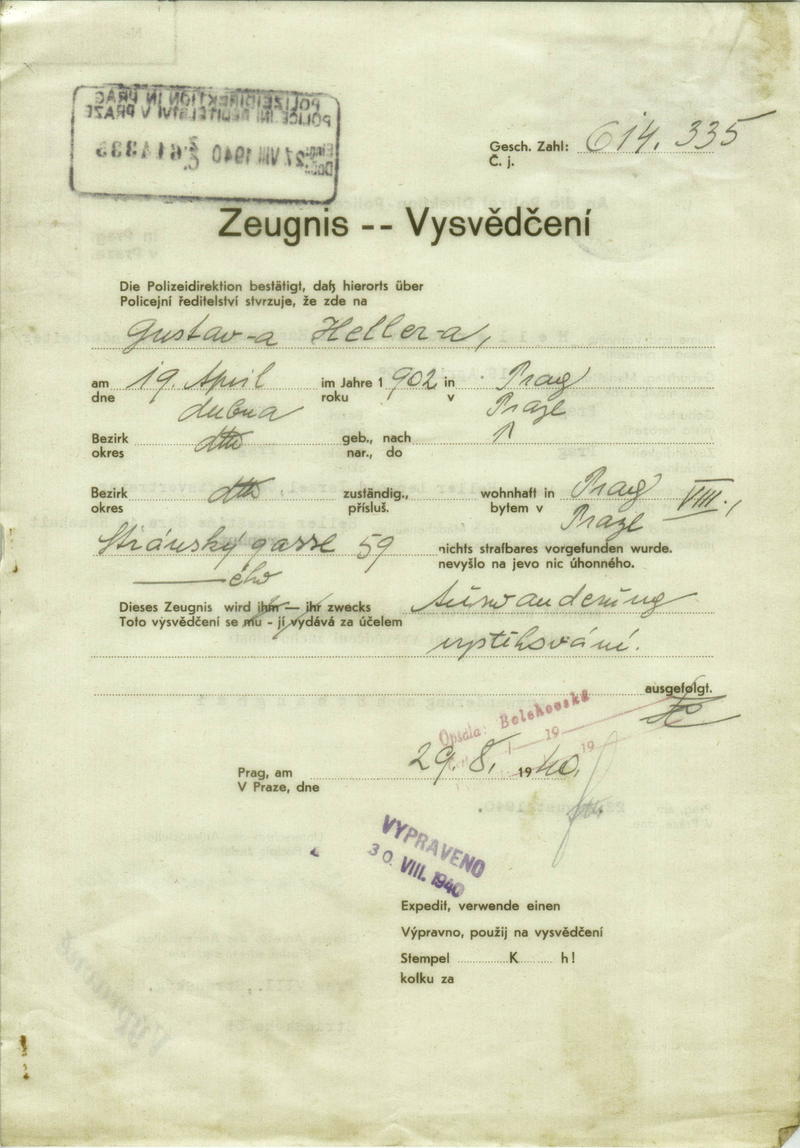 POLIZEIDIREKTION IN PRAG
POLICEJNÍ ŘEDITELSTVÍ V PRAZE
27 VIII 1940 614335
Gesch. Zahl: 614.335
Č. j.
Zeugnis -- Vysvědčení
Die Polizeidirektion bestätigt, daß hierorts über
Policejní ředitelství stvrzuje, že zde na
Gustav-a Heller-a,
am 19. April im Jahre 1902 in Prag
dne dubna roku v Praze
Bezirk dtto geb., nach
okres nar., do
Bezirk dtto zuständig., wohnhaft in Prag VIII.,
okres přísluš. bytem v Praze
Stránský gasse 59 nichts strafbares vorgefunden wurde.
ého nevyšlo na jevo nic úhonného.
Dieses Zeugnis wird ihm — ihr zwecks Auswanderung
Toto vysvědčení se mu - jí vydává za účelem
vystěhování.
ausgefolgt.
Opsala: Bolehovská
19 19
Prag, am 29. 8. 1940.
V Praze, dne
VYPRAVENO
30 VIII. 1940
Expedit, verwende einen
Výpravno, použij na vysvědčení
Stempel K h!
kolku za